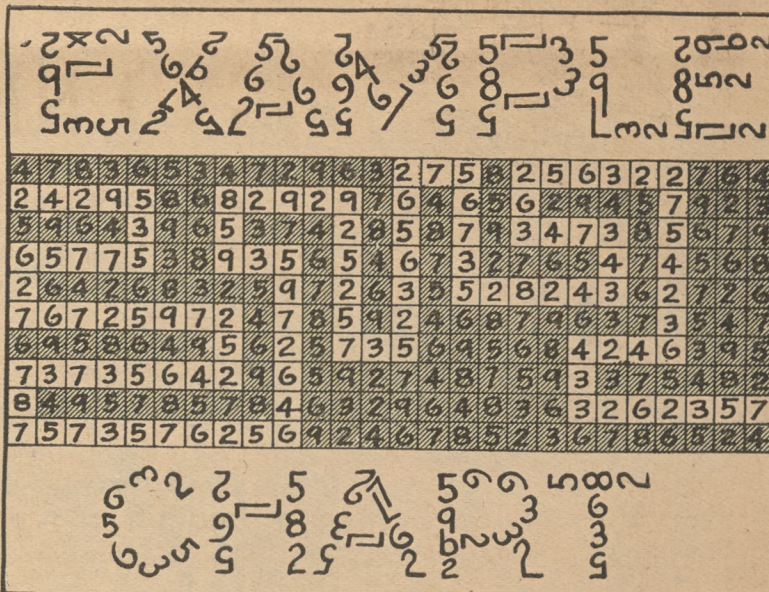 EXAMPLE
4 7 8 3 6 5 3 4 7 2 9 6 3 2 7 5 8 2 5 6 3 2 2 7 6 4
2 4 2 9 5 8 6 8 2 9 2 9 7 6 4 6 5 6 2 9 4 5 7 9 2 3
5 9 6 4 3 9 6 5 3 7 4 2 8 5 8 7 9 3 4 7 3 8 5 6 7 9
6 5 7 7 5 3 8 9 3 5 6 5 4 6 7 3 2 7 6 5 4 7 4 5 6 8
2 6 4 2 6 8 3 2 5 9 7 2 6 3 5 5 2 8 2 4 3 6 2 7 2 6
7 6 7 2 5 9 7 2 4 7 8 5 9 2 4 6 8 7 9 6 3 7 3 5 4 7
6 9 5 8 6 4 9 5 6 2 5 7 3 5 6 9 5 6 8 4 2 4 6 3 9 5
7 3 7 3 5 6 4 2 9 6 5 9 2 7 4 8 7 5 9 3 3 7 5 4 8 2
8 4 9 5 7 8 5 7 8 4 6 3 2 9 6 4 8 3 6 3 2 6 2 3 5 7
7 5 7 3 5 7 6 2 5 6 9 2 4 6 7 8 5 2 3 6 7 8 6 5 2 4
CHART